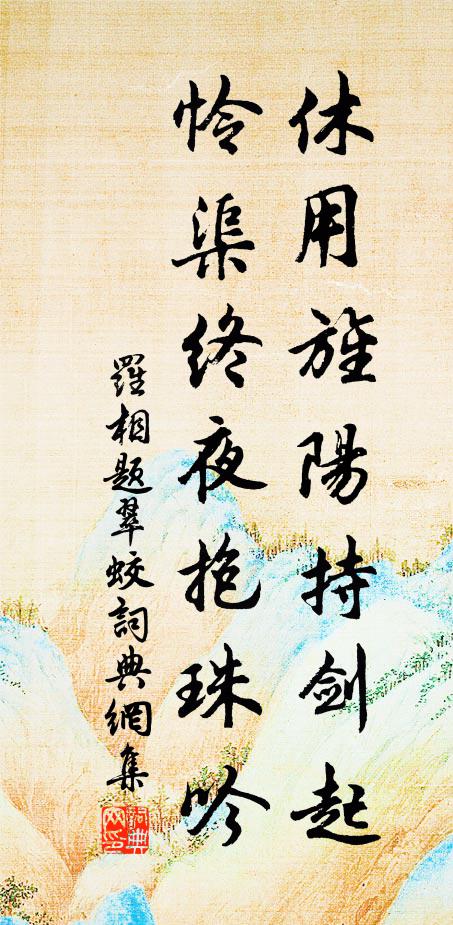 休用旌陽持劍起
憐渠終夜抱珠吟
羅相題翠蛟詞典網集
詞典網印